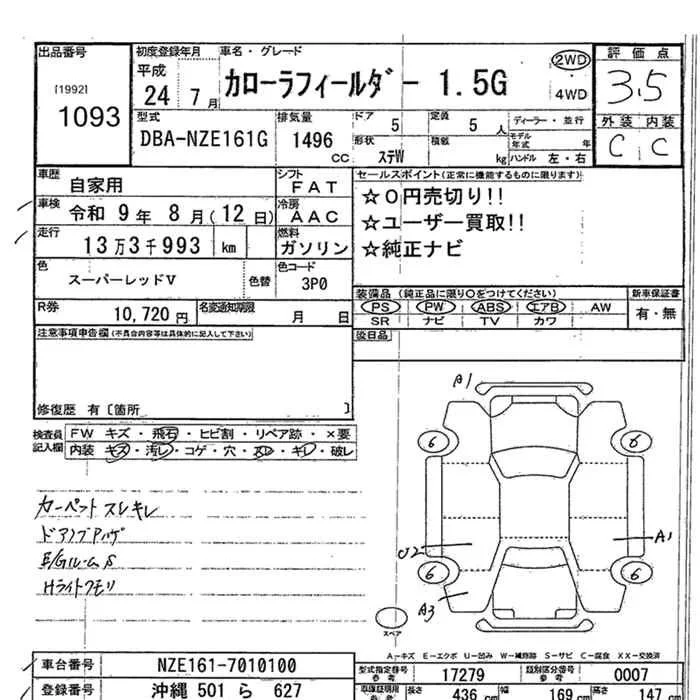 出品番号
[1992]
1093
初度登録年月 車名・グレード
平成
24 7月 カローラフィールダー 1.5G
2WD
4WD
評価点
3.5
外装 内装
C C
型式
DBA-NZE161G
排気量
1496 cc
ドア 5
定員 5 人
ディーラー・並行
形状 ステW
積載 kg
モデル年式 年
ハンドル 左・右
車歴 自家用
シフト FAT
車検 令和 9年 8月(12日)
冷房 AAC
走行 13万3千993 km
燃料 ガソリン
色 スーパーレッドV 色替
色コード 3P0
R券 10,720円
名変通知期限 月 日
セールスポイント(正常に機能するものに限ります)
☆0円売切り!!
☆ユーザー買取!!
☆純正ナビ
装備品 (純正品に限り○をつけてください)
PS PW ABS エアB AW
SR ナビ TV カワ
新車保証書
有・無
後日品
注意事項申告欄 (不具合内容等は具体的に記入して下さい)
修復歴 有〔箇所 〕
検査員記入欄
FW キズ・飛石・ヒビ割・リペア跡・×要
内装 キズ・汚レ・コゲ・穴・スレ・キレ・破レ
カーペットスレキレ
E/GルームS
Hライトクモリ
A1
6 6
U2 A1
6 6
A3
スペア
A-キズ E-エクボ U-凹み W-補修跡 S-サビ C-腐食 XX-交換済
車台番号 NZE161-7010100
登録番号 沖縄 501 ら 627
型式指定番号 参考 17279
類別区分番号 参考 0007
車検証明限 参考 長さ 436 cm 幅 169 cm 高さ 147 cm